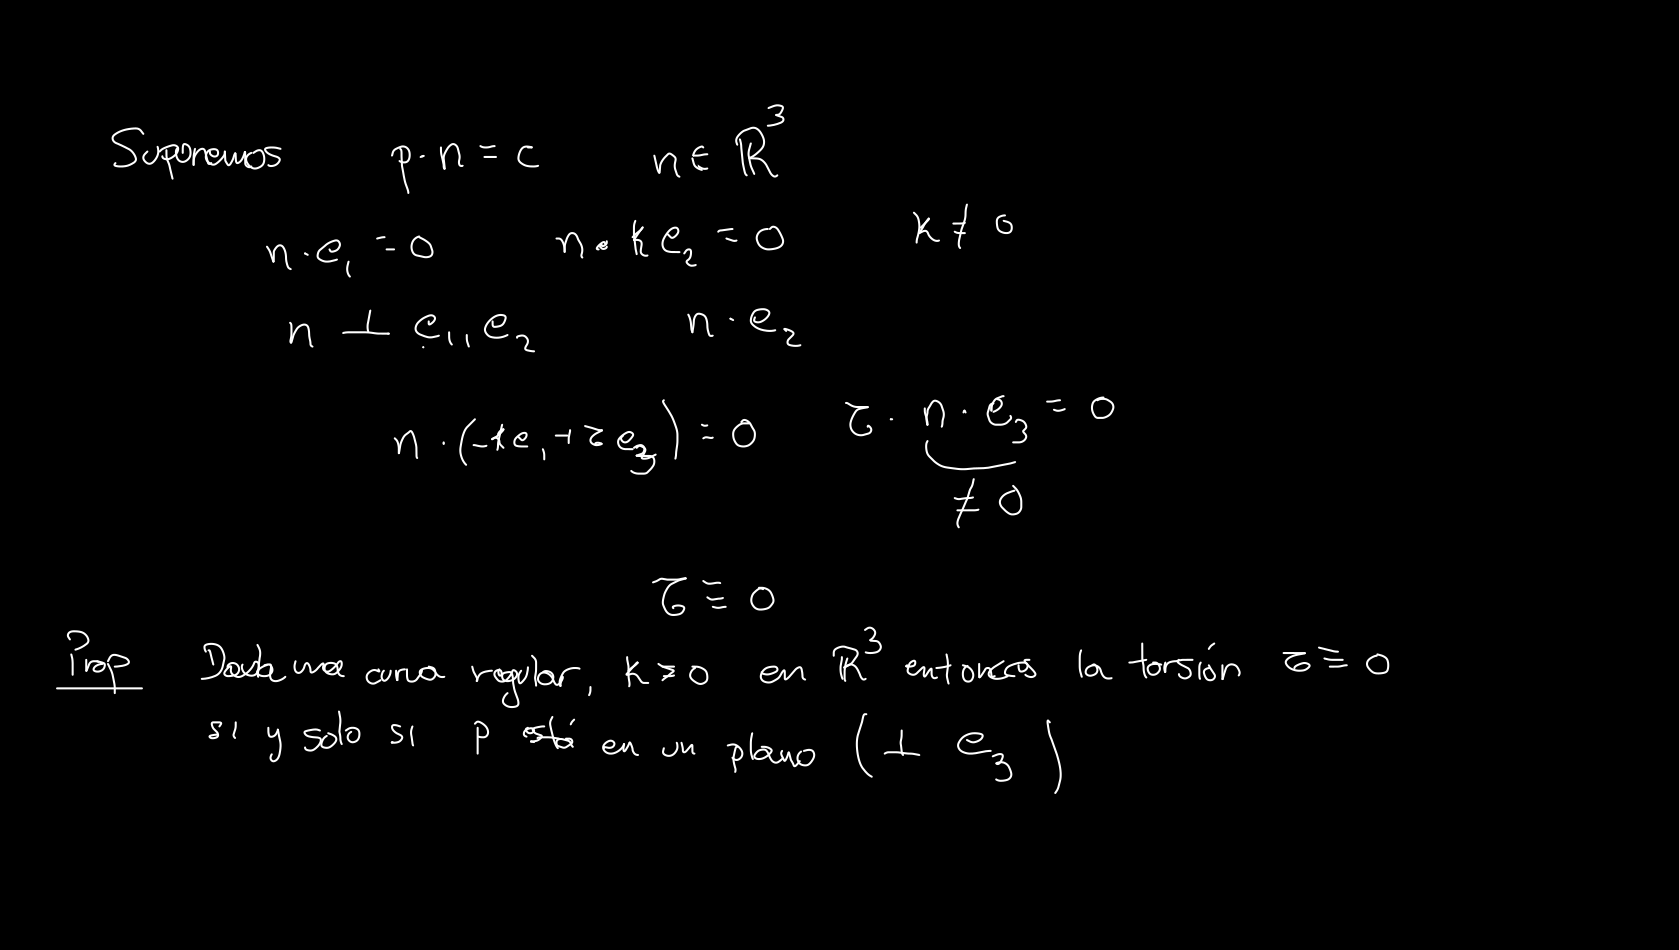 Suponemos p · n = c n ∈ ℝ³
n · e₁ = 0 n · k e₂ = 0 k ≠ 0
n ⊥ e₁, e₂ n · e₂
n · (-k e₁ + τ e₃) = 0 τ · n · e₃ = 0
≠ 0
τ ≡ 0
Prop Dada una curva regular, k > 0 en ℝ³ entonces la torsión τ ≡ 0
si y solo si p está en un plano (⊥ e₃)